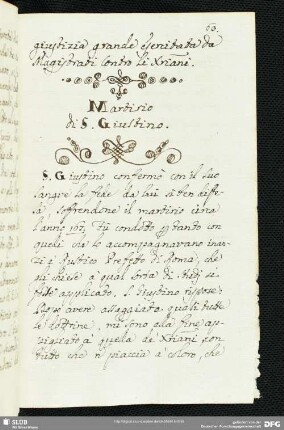 63.
giustizia grande esercitata da
Magistrati contro li Xriani.
Martirio
di S. Giustino.
S. Giustino confermò con il suo
sangue la fede da lui sì ben diffe-
sa, soffrendone il martirio circa
l'anno 167. Fù condotto con
quelli che lo accompagnavano inan-
zi a Rustico Prefetto di Roma, che
richiese a qual sorta di studj si
fosse applicato. S. Giustino rispose
avere assaggiato quasi tutte
le dottrine, mi sono alla fine ap-
pigliato à quella de Xriani, con
tutto che n piaccia a coloro, che
SLUB
DFG